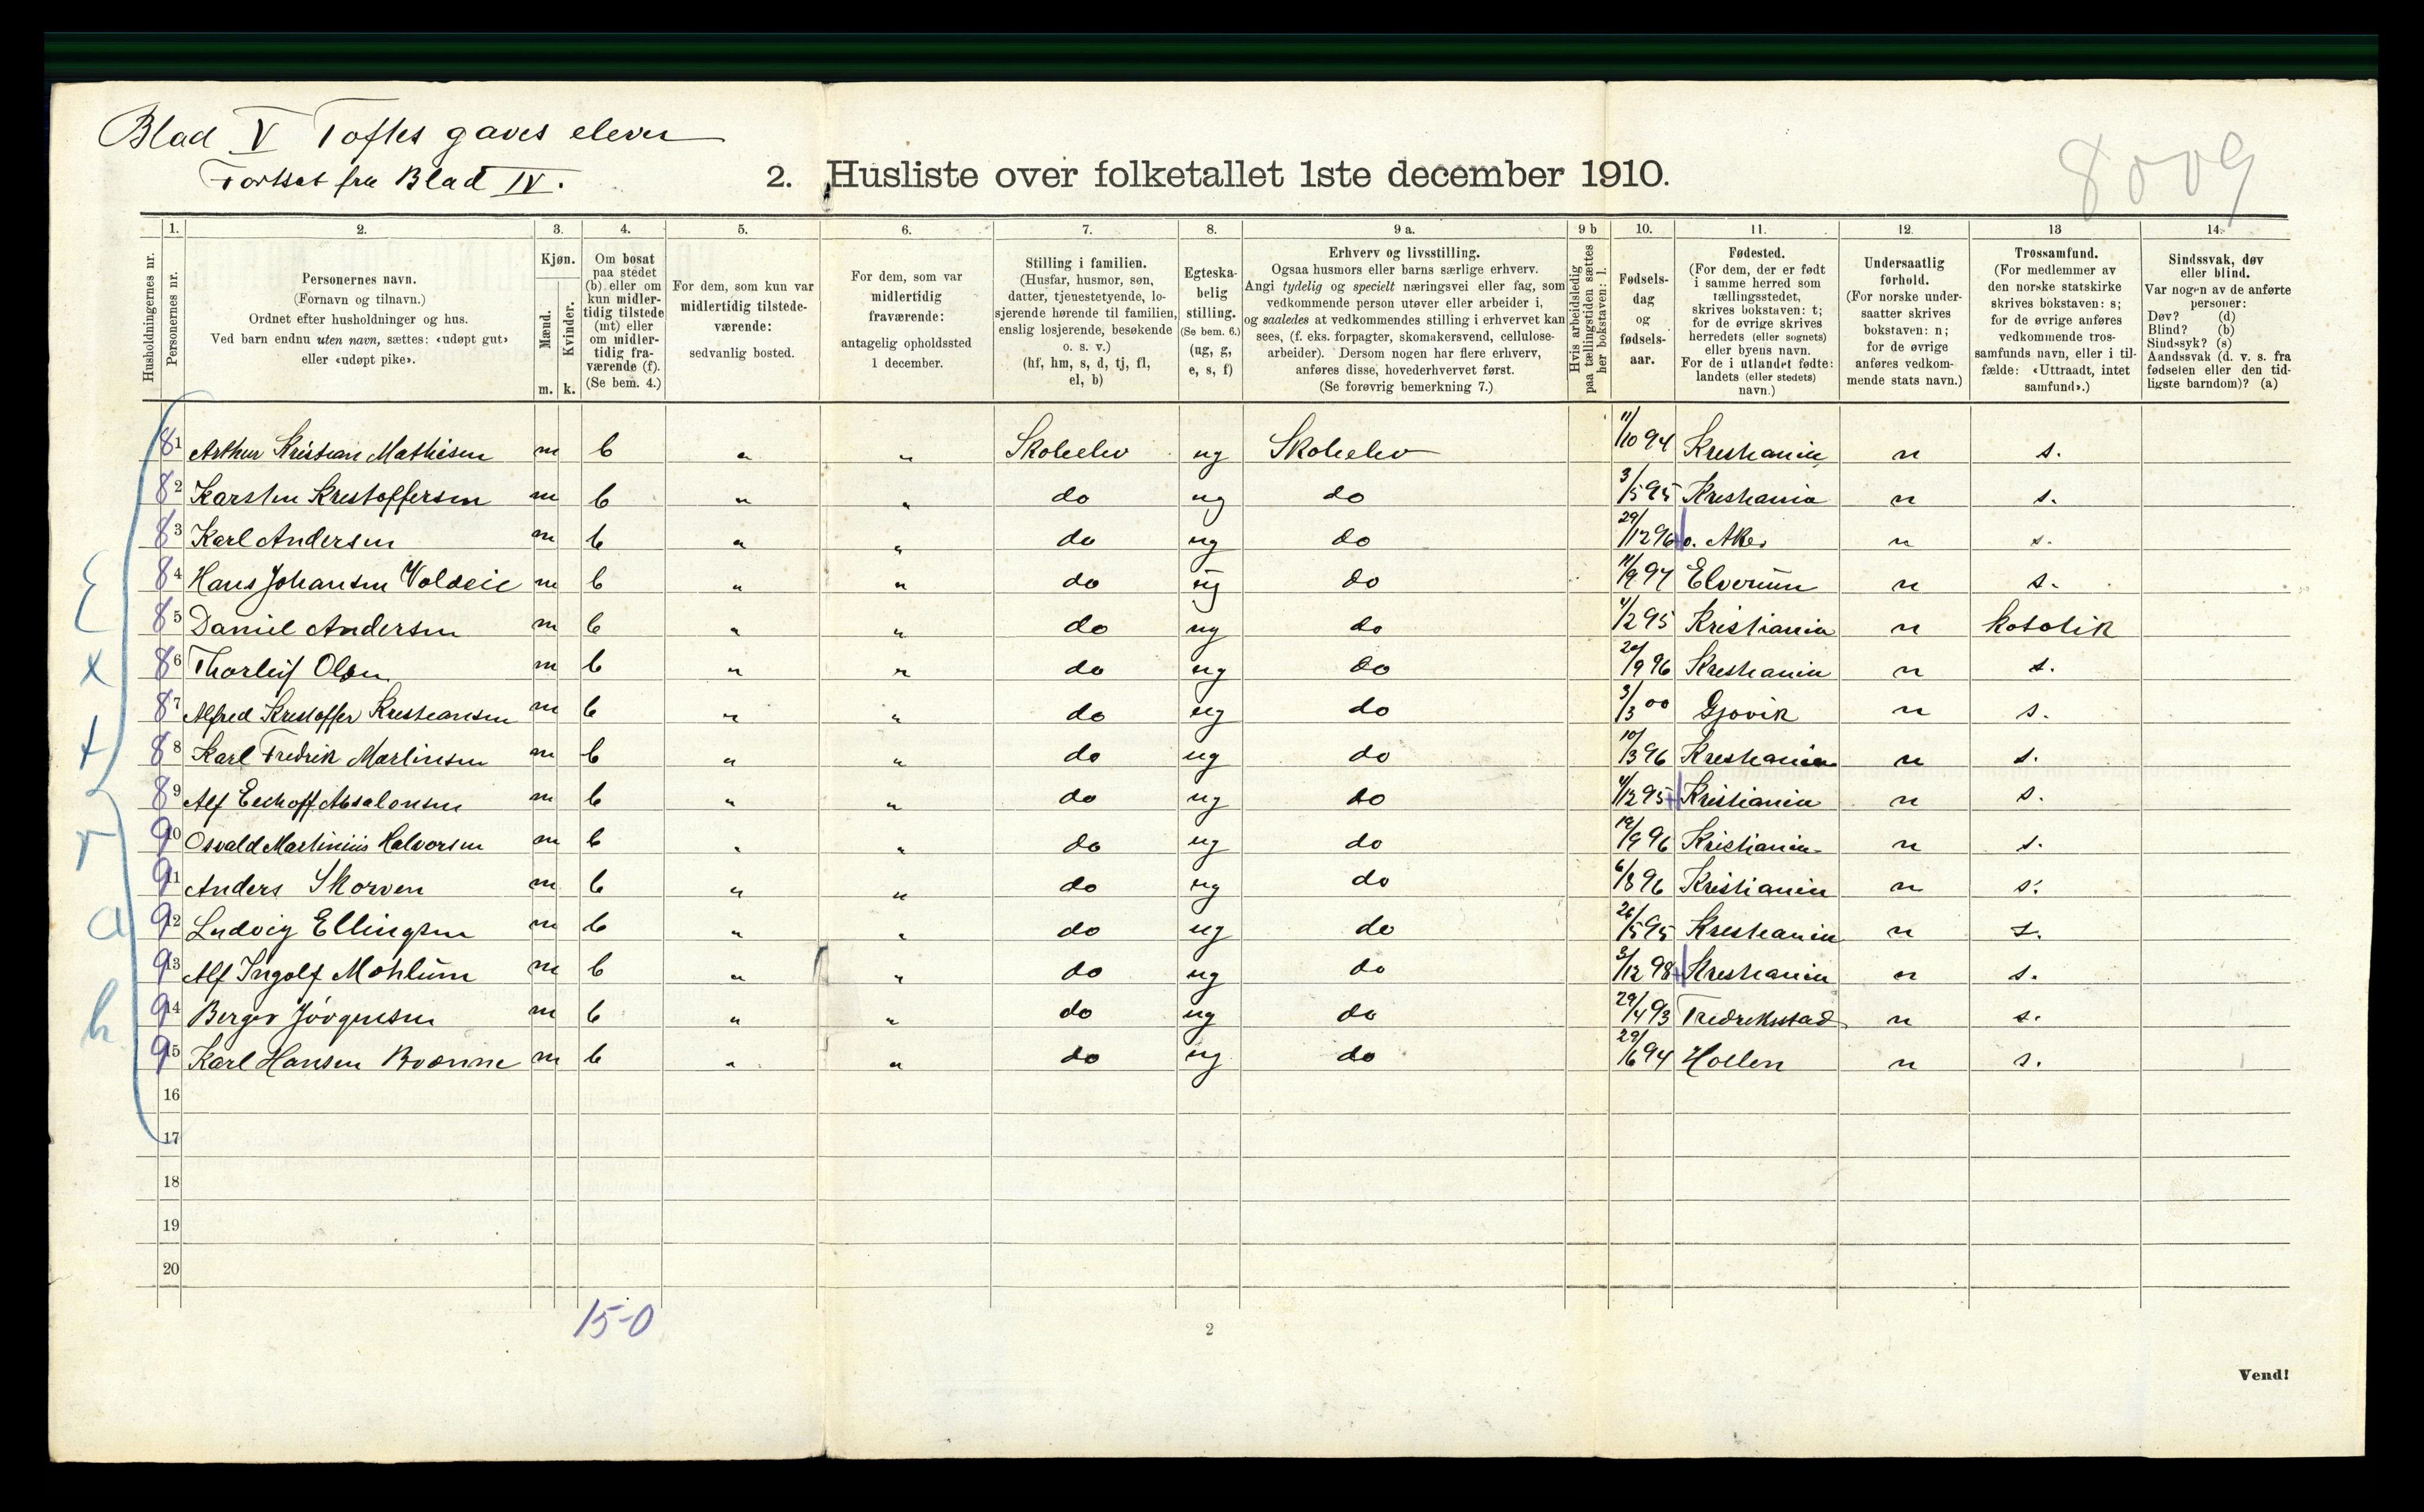 Blad V Toftes gaves elever
Fortsat fra Blad IV.
8009
2. Husliste over folketallet 1ste december 1910.
Husholdningernes nr.
1. Personernes nr.
2. Personernes navn. (Fornavn og tilnavn.) Ordnet efter husholdninger og hus. Ved barn endnu uten navn, sættes: «udøpt gut» eller «udøpt pike».
3. Kjøn. Mænd. m. Kvinder. k.
4. Om bosat paa stedet (b) eller om kun midlertidig tilstede (mt) eller om midlertidig fraværende (f). (Se bem. 4.)
5. For dem, som kun var midlertidig tilstedeværende: sedvanlig bosted.
6. For dem, som var midlertidig fraværende: antagelig opholdssted 1 december.
7. Stilling i familien. (Husfar, husmor, søn, datter, tjenestetyende, losjerende hørende til familien, enslig losjerende, besøkende o. s. v.) (hf, hm, s, d, tj, fl, el, b)
8. Egteskabelig stilling. (Se bem. 6.) (ug, g, e, s, f)
9 a. Erhverv og livsstilling. Ogsaa husmors eller barns særlige erhverv. Angi tydelig og specielt næringsvei eller fag, som vedkommende person utøver eller arbeider i, og saaledes at vedkommendes stilling i erhvervet kan sees, (f. eks. forpagter, skomakersvend, cellulosearbeider). Dersom nogen har flere erhverv, anføres disse, hovederhvervet først. (Se forøvrig bemerkning 7.)
9 b Hvis arbeidsledig paa tællingstiden sættes her bokstaven: l.
10. Fødselsdag og fødselsaar.
11. Fødested. (For dem, der er født i samme herred som tællingsstedet, skrives bokstaven: t; for de øvrige skrives herredets (eller sognets) eller byens navn. For de i utlandet fødte: landets (eller stedets) navn.)
12. Undersaatlig forhold. (For norske undersaatter skrives bokstaven: n; for de øvrige anføres vedkommende stats navn.)
13 Trossamfund. (For medlemmer av den norske statskirke skrives bokstaven: s; for de øvrige anføres vedkommende trossamfunds navn, eller i tilfælde: «Uttraadt, intet samfund».)
14. Sindssvak, døv eller blind. Var nogen av de anførte personer: Døv? (d) Blind? (b) Sindssyk? (s) Aandssvak (d. v. s. fra fødselen eller den tidligste barndom)? (a)
81 Arthur Kristian Mathisen m b " " Skoleelev ug Skoleelev 11/10 94 Kristiania n s.
82 Karsten Kristoffersen m b " " do ug do 3/5 95 Kristiania n s.
83 Karl Andersen m b " " do ug do 29/12 96 Aker n s.
84 Hans Johansen Voldeie m b " " do ug do 11/9 97 Elverum n s.
85 Daniel Andersen m b " " do ug do 4/2 95 Kristiania n katolik
86 Thorleif Olsen m b " " do ug do 20/9 96 Kristiania n s.
87 Alfred Kristoffer Kristiansen m b " " do ug do 3/3 00 Gjøvik n s.
88 Karl Fredrik Martinsen m b " " do ug do 10/3 96 Kristiania n s.
89 Alf Eechoff Absalonsen m b " " do ug do 4/12 95 Kristiania n s.
90 Osvald Martinius Halvorsen m b " " do ug do 19/9 96 Kristiania n s.
91 Anders Skorven m b " " do ug do 6/8 96 Kristiania n s.
92 Ludvig Ellingsen m b " " do ug do 26/5 95 Kristiania n s.
93 Alf Ingolf Mohlum m b " " do ug do 3/12 98 Kristiania n s.
94 Berger Jörgensen m b " " do ug do 29/4 93 Fredriksstad n s.
95 Karl Hansen m b " " do ug do 29/6 94 Hollen n s.
16
17
18
19
20
Extrah
15-0
2
Vend!